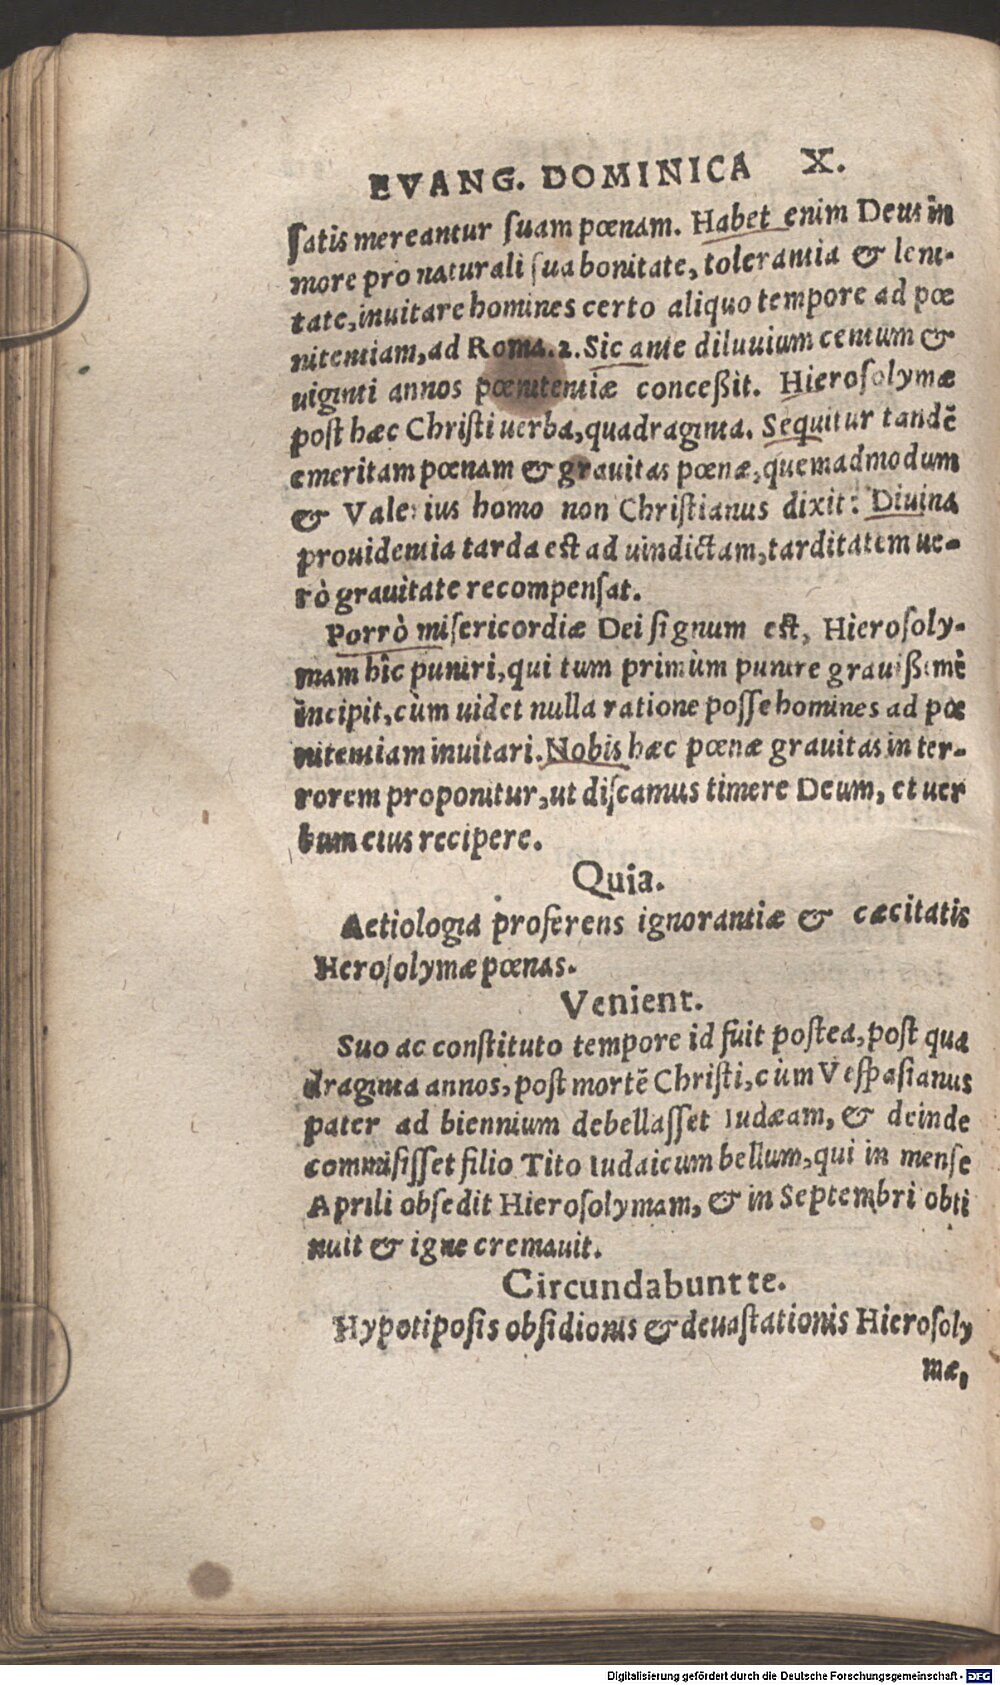 EVANG. DOMINICA X.
ſatis mereantur ſuam pœnam. Habet enim Deus in
more pro naturali ſua bonitate, tolerantia & leni-
tate, inuitare homines certo aliquo tempore ad pœ
nitentiam, ad Roma. 2. Sic ante diluuium centum &
uiginti annos pœnitentiæ conceßit. Hieroſolymæ
poſt hæc Chriſti uerba, quadraginta. Sequitur tandē
emeritam pœnam & grauitas pœnæ, quemadmodum
& Valerius homo non Chriſtianus dixit: Diuina
prouidentia tarda est ad uindictam, tarditatem ue-
rò grauitate recompenſat.
Porrò miſericordiæ Dei ſignum est, Hieroſoly-
mam hîc puniri, qui tum primùm punire grauißimè
incipit, cùm uidet nulla ratione poſſe homines ad pœ
nitentiam inuitari. Nobis hæc pœnæ grauitas in ter-
rorem proponitur, ut diſcamus timere Deum, et uer
bum eius recipere.
Quia.
Aetiologia proferens ignorantiæ & cæcitatis
Heroſolymæ pœnas.
Venient.
Suo ac conſtituto tempore id fuit poſtea, poſt qua
draginta annos, poſt mortē Chriſti, cùm Veſpaſianus
pater ad biennium debellaſſet Iudæam, & deinde
commiſiſſet filio Tito Iudaicum bellum, qui in menſe
Aprili obſedit Hieroſolymam, & in Septembri obti
nuit & igne cremauit.
Circundabunt te.
Hypotipoſis obſidionis & deuaſtationis Hieroſoly
mæ,
Digitalisierung gefördert durch die Deutsche Forschungsgemeinschaft - DFG